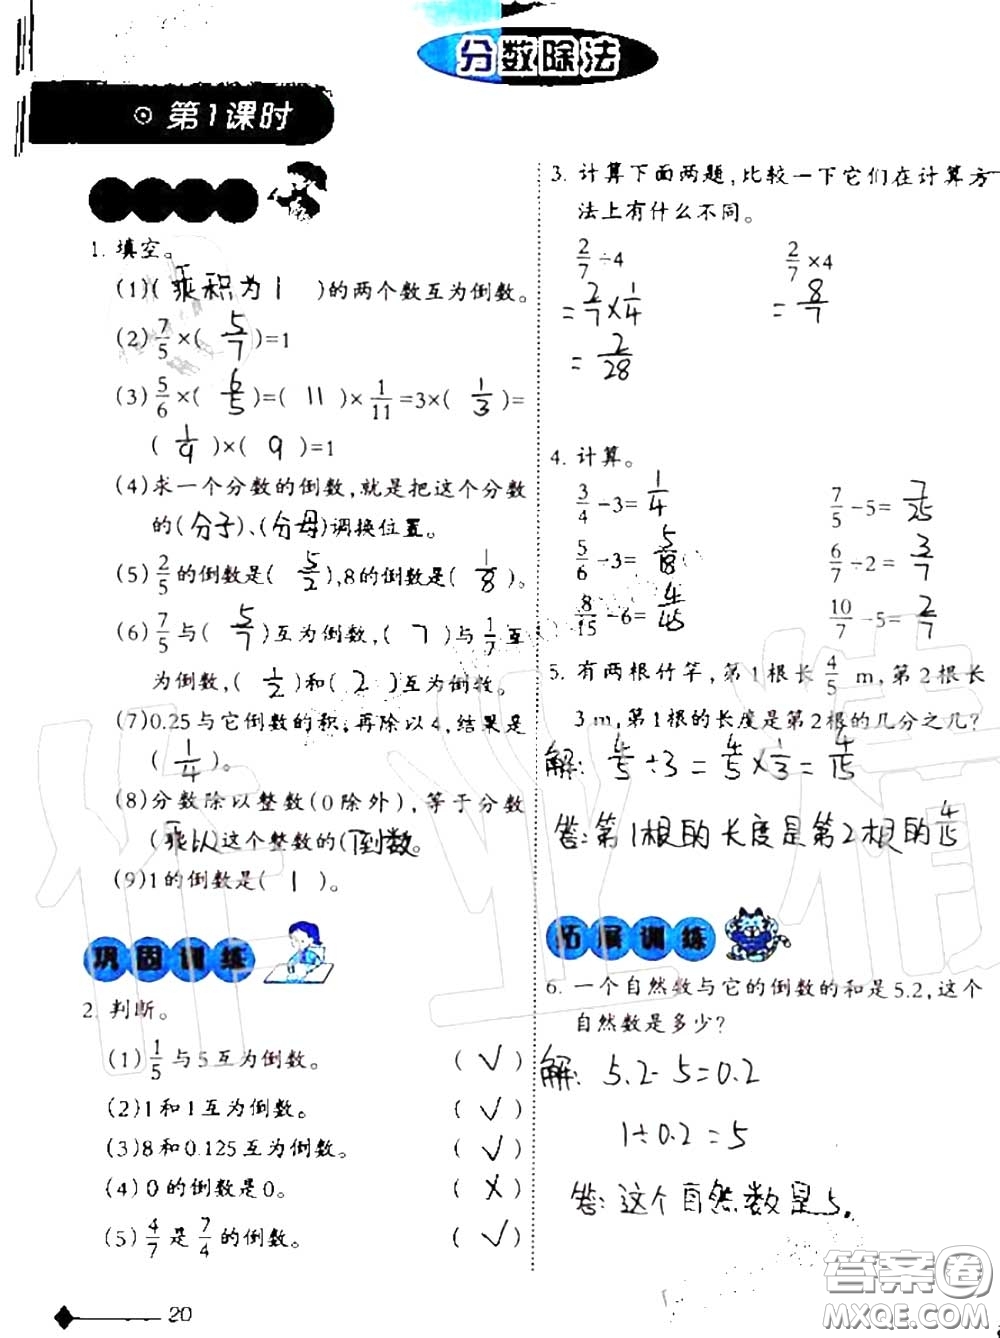 分数除法
第1课时
1. 填空。
(1)( 乘积为1 )的两个数互为倒数。
(2) 7/5 ×( 5/7 )=1
(3) 5/6 ×( 6/5 )=( 11 )× 1/11 =3×( 1/3 )=
( 1/9 )×( 9 )=1
(4)求一个分数的倒数,就是把这个分数
的(分子)、(分母)调换位置。
(5) 2/5 的倒数是( 5/2 ),8的倒数是( 1/8 )。
(6) 7/5 与( 5/7 )互为倒数,( 7 )与 1/7 互
为倒数,( 1/2 )和( 2 )互为倒数。
(7)0.25与它倒数的积,再除以4,结果是
( 1/4 )。
(8)分数除以整数(0除外),等于分数
(乘以)这个整数的(倒数
(9)1的倒数是( 1 )。
巩固训练
2. 判断。
(1) 1/5 与5互为倒数。 ( √ )
(2)1和1互为倒数。 ( √ )
(3)8和0.125互为倒数。 ( √ )
(4)0的倒数是0。 ( X )
(5) 4/7 是 7/4 的倒数。 ( √ )
20
3. 计算下面两题,比较一下它们在计算方
法上有什么不同。
2/7 ÷4 2/7 ×4
= 2/7 × 1/4 = 8/7
= 2/28
4. 计算。
3/4 ÷3= 1/4 7/5 ÷5= 7/25
5/6 ÷3= 5/18 6/7 ÷2= 3/7
8/15 ÷6= 4/45 10/7 ÷5= 2/7
5. 有两根竹竿,第1根长 4/5 m,第2根长
3 m,第1根的长度是第2根的几分之几?
解: 4/5 ÷3= 4/5 × 1/3 = 4/15
答:第1根的长度是第2根的 4/15
拓展训练
6. 一个自然数与它的倒数的和是5.2,这个
自然数是多少?
解: 5.2-5=0.2
1÷0.2=5
答:这个自然数是5.
作业精
答案圈
MXQE.COM